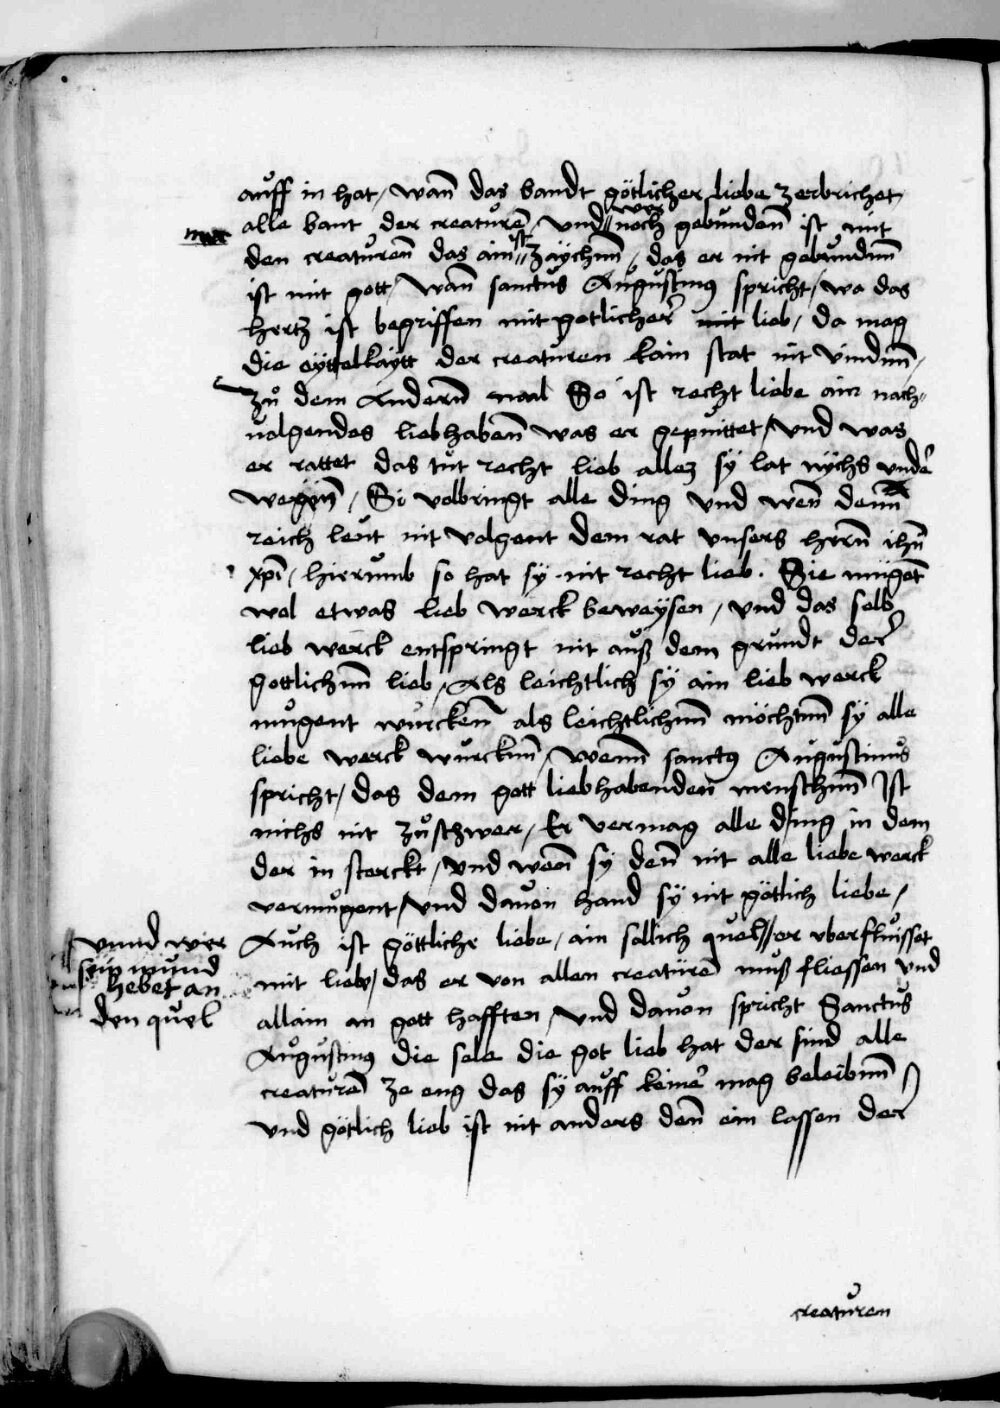 auff in hat / wann̄ das bandt götlicher liebe zerbrichet
alle bant der creaturē / und wer noch gebundenn̄ ist mit
den creaturenn̄ das ain ist zaychnn̄ / das er nit gebundnn̄
ist mit gott / wann̄ sanctus Augustinus spricht / wa das
hertz ist begriffen mit gotlicher lieb / da mag
die eyttelkaytt der creaturen kain stat nit vindnn̄ /
zů dem Andernn̄ maal So ist recht liebe ain nach-
uolgendes liebhabenn̄ was er gepuittet / und was
er rattet das tut recht lieb allez sy lat nychs under
wegenn̄ / Si volbringt alle ding und wenn̄ denn̄
reich leut nit volgent dem rat unsers herrn̄ ihū
xpī / hierumb so hat sy nit recht lieb . Sie mügēt
wol etwas lieb werck beweysen / und das selb
lieb werck entspringt nit auß dem grundt der
gottlichnn̄ lieb / Als leichtlich sy ain lieb werck
mugent wurckenn̄ als leichtlichnn̄ möchtnn̄ sy alle
liebe werck wurcknn̄ / wenn̄ sanctus Augustinus
spricht / das dem gott liebhabenden menschnn̄ Ist
nichs nit zůschwer / Er vermag alle ding in dem
der in sterckt / und wenn̄ sy denn̄ nit alle liebe werck
vermugent / und dauon hand sy nit göttlich liebe /
Auch ist göttliche liebe / ain sollich quel // er uberflüsset
unnd wer
sein mund
hebet an
den quel
mit liebe / das er von allen creaturē muß fliessen und
allain an gott hafften / und dauon spricht Sanctus
Augustinus die sele die got lieb hat der sind alle
creaturē ze eng das sy auff keiner mag beleibnn̄ /
und götlich lieb ist nit anders denn̄ ein lassen der
creaturen